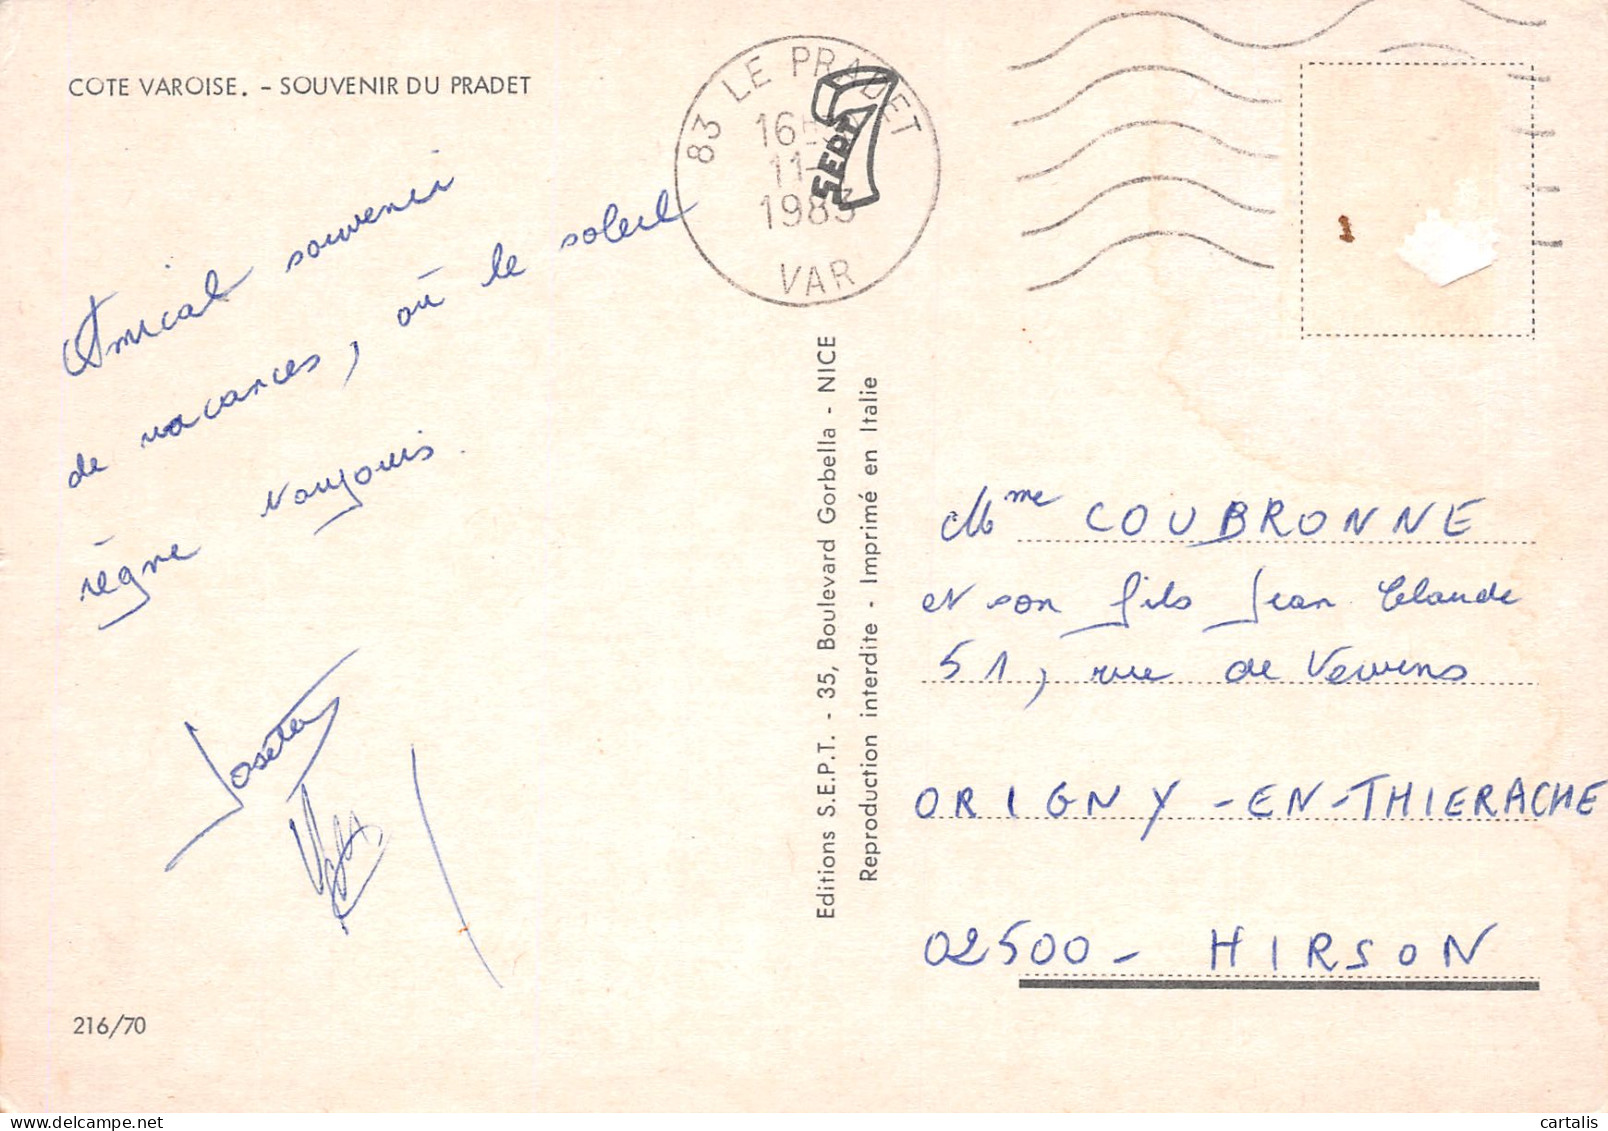 COTE VAROISE. - SOUVENIR DU PRADET
Amical souvenir
de vacances, où le soleil
règne toujours.
216/70
83 LE PRADET
16H
11-
1983
VAR
7
SEPT
Editions S.E.P.T. - 35, Boulevard Gorbella - NICE
Reproduction interdite - Imprimé en Italie
Mme COUBRONNE
et son fils Jean Claude
51, rue de Vervins
ORIGNY-EN-THIERACHE
02500 - HIRSON
cartalis